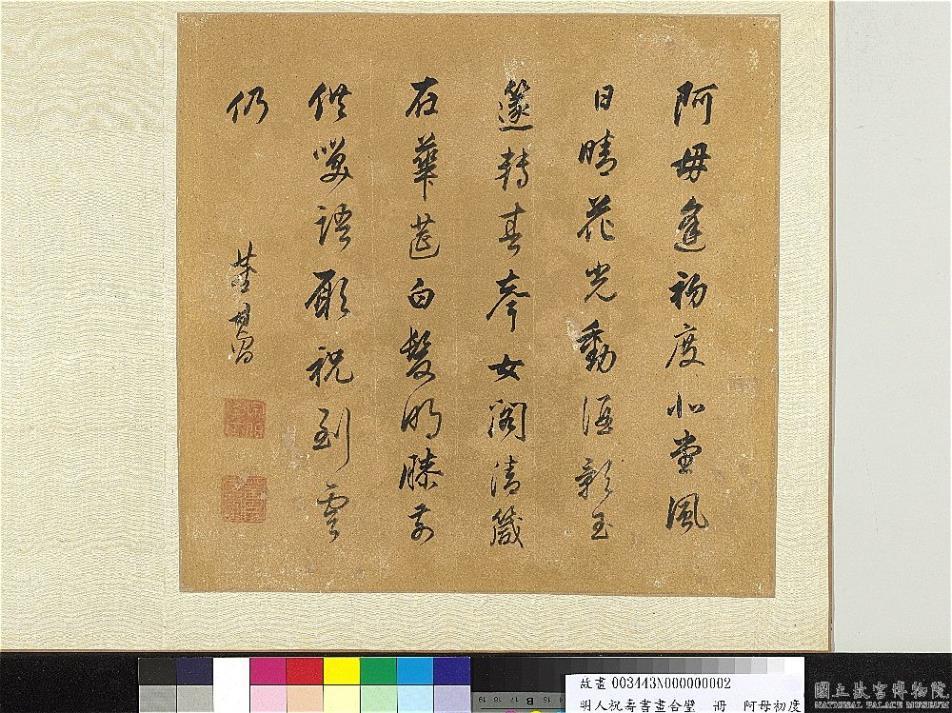 阿母逢初度北堂風
日晴花光動酒彩玉
篴轉春聲女閣清箴
在華筵白髮明膝前
供笑語願祝到雲
仍
董其昌
故畫 003443N000000002
明人祝壽書畫合璧 冊 阿母初度
國立故宮博物院
NATIONAL PALACE MUSEUM